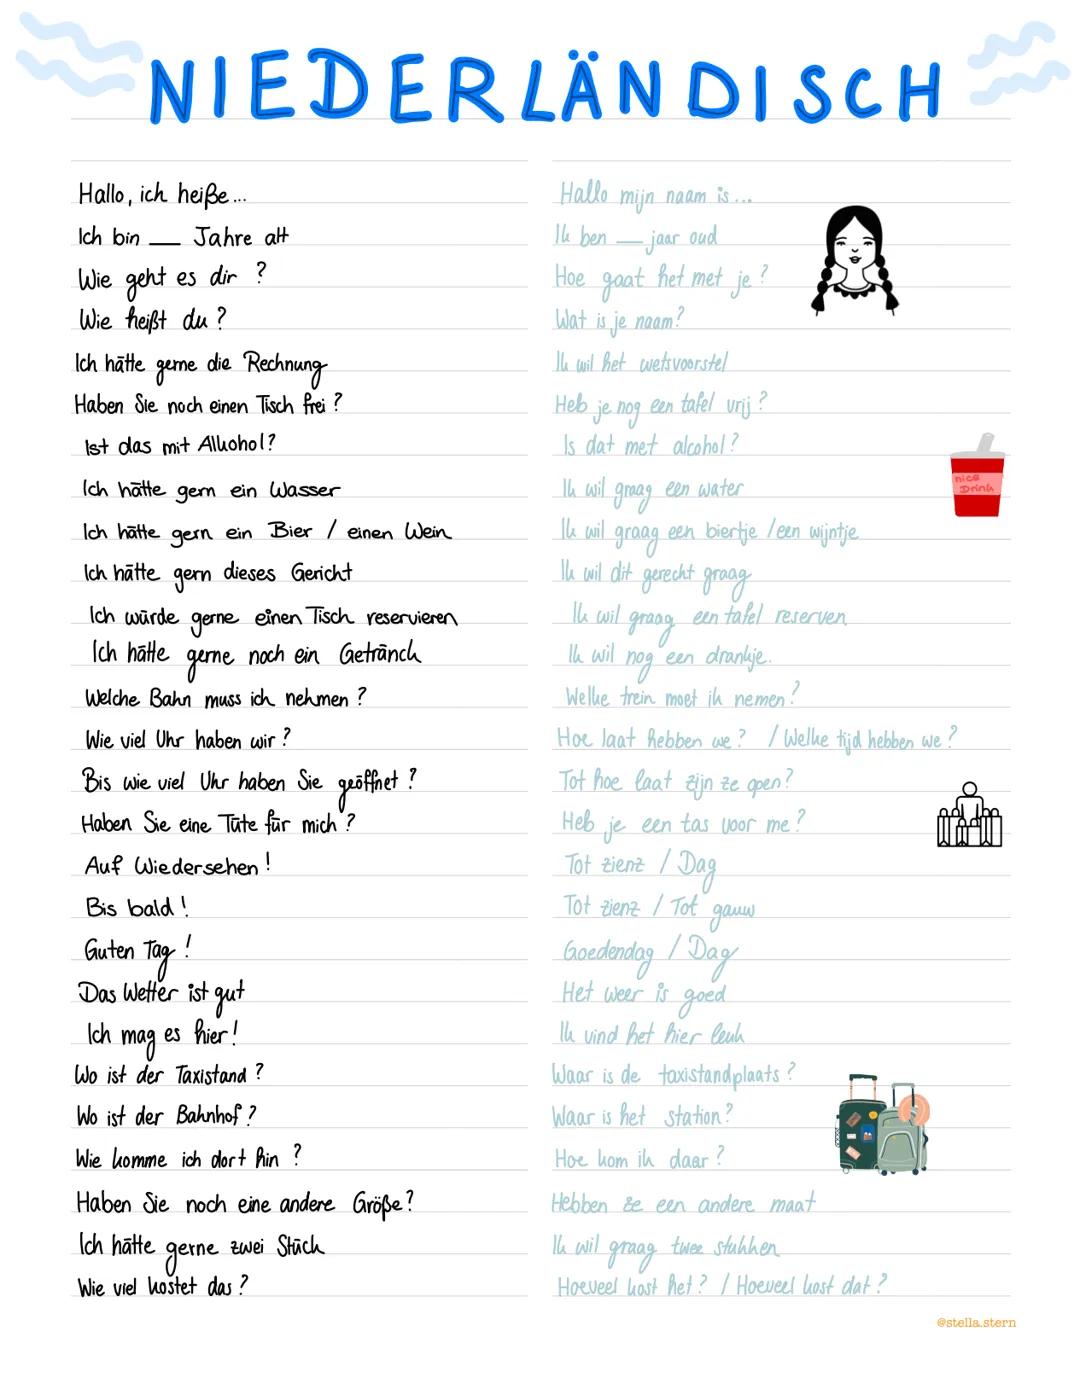 NIEDERLÄNDISCH
Hallo, ich heiße... Hallo mijn naam is...
Ich bin ___ Jahre alt Ik ben ___ jaar oud
Wie geht es dir? Hoe gaat het met je?
Wie heißt du? Wat is je naam?
Ich hätte gerne die Rechnung Ik wil het wetsvoorstel
Haben Sie noch einen Tisch frei? Heb je nog een tafel vrij?
Ist das mit Alkohol? Is dat met alcohol?
Ich hätte gern ein Wasser Ik wil graag een water
nice
Drink
Ich hätte gern ein Bier / einen Wein Ik wil graag een biertje / een wijntje
Ich hätte gern dieses Gericht Ik wil dit gerecht graag
Ich würde gerne einen Tisch reservieren Ik wil graag een tafel reserven
Ich hätte gerne noch ein Getränck Ik wil nog een drankje.
Welche Bahn muss ich nehmen? Welke trein moet ik nemen?
Wie viel Uhr haben wir? Hoe laat hebben we? / Welke tijd hebben we?
Bis wie viel Uhr haben Sie geöffnet? Tot hoe laat zijn ze open?
Haben Sie eine Tüte für mich? Heb je een tas voor me?
Auf Wiedersehen! Tot zienz / Dag
Bis bald! Tot zienz / Tot gauw
Guten Tag! Goedendag / Dag
Das Wetter ist gut Het weer is goed
Ich mag es hier! Ik vind het hier leuk
Wo ist der Taxistand? Waar is de taxistandplaats?
Wo ist der Bahnhof? Waar is het station?
Wie komme ich dort hin? Hoe kom ik daar?
Haben Sie noch eine andere Größe? Hebben ze een andere maat
Ich hätte gerne zwei Stück Ik wil graag twee stukken
Wie viel kostet das? Hoeveel kost het? / Hoeveel kost dat?
@stella.stern